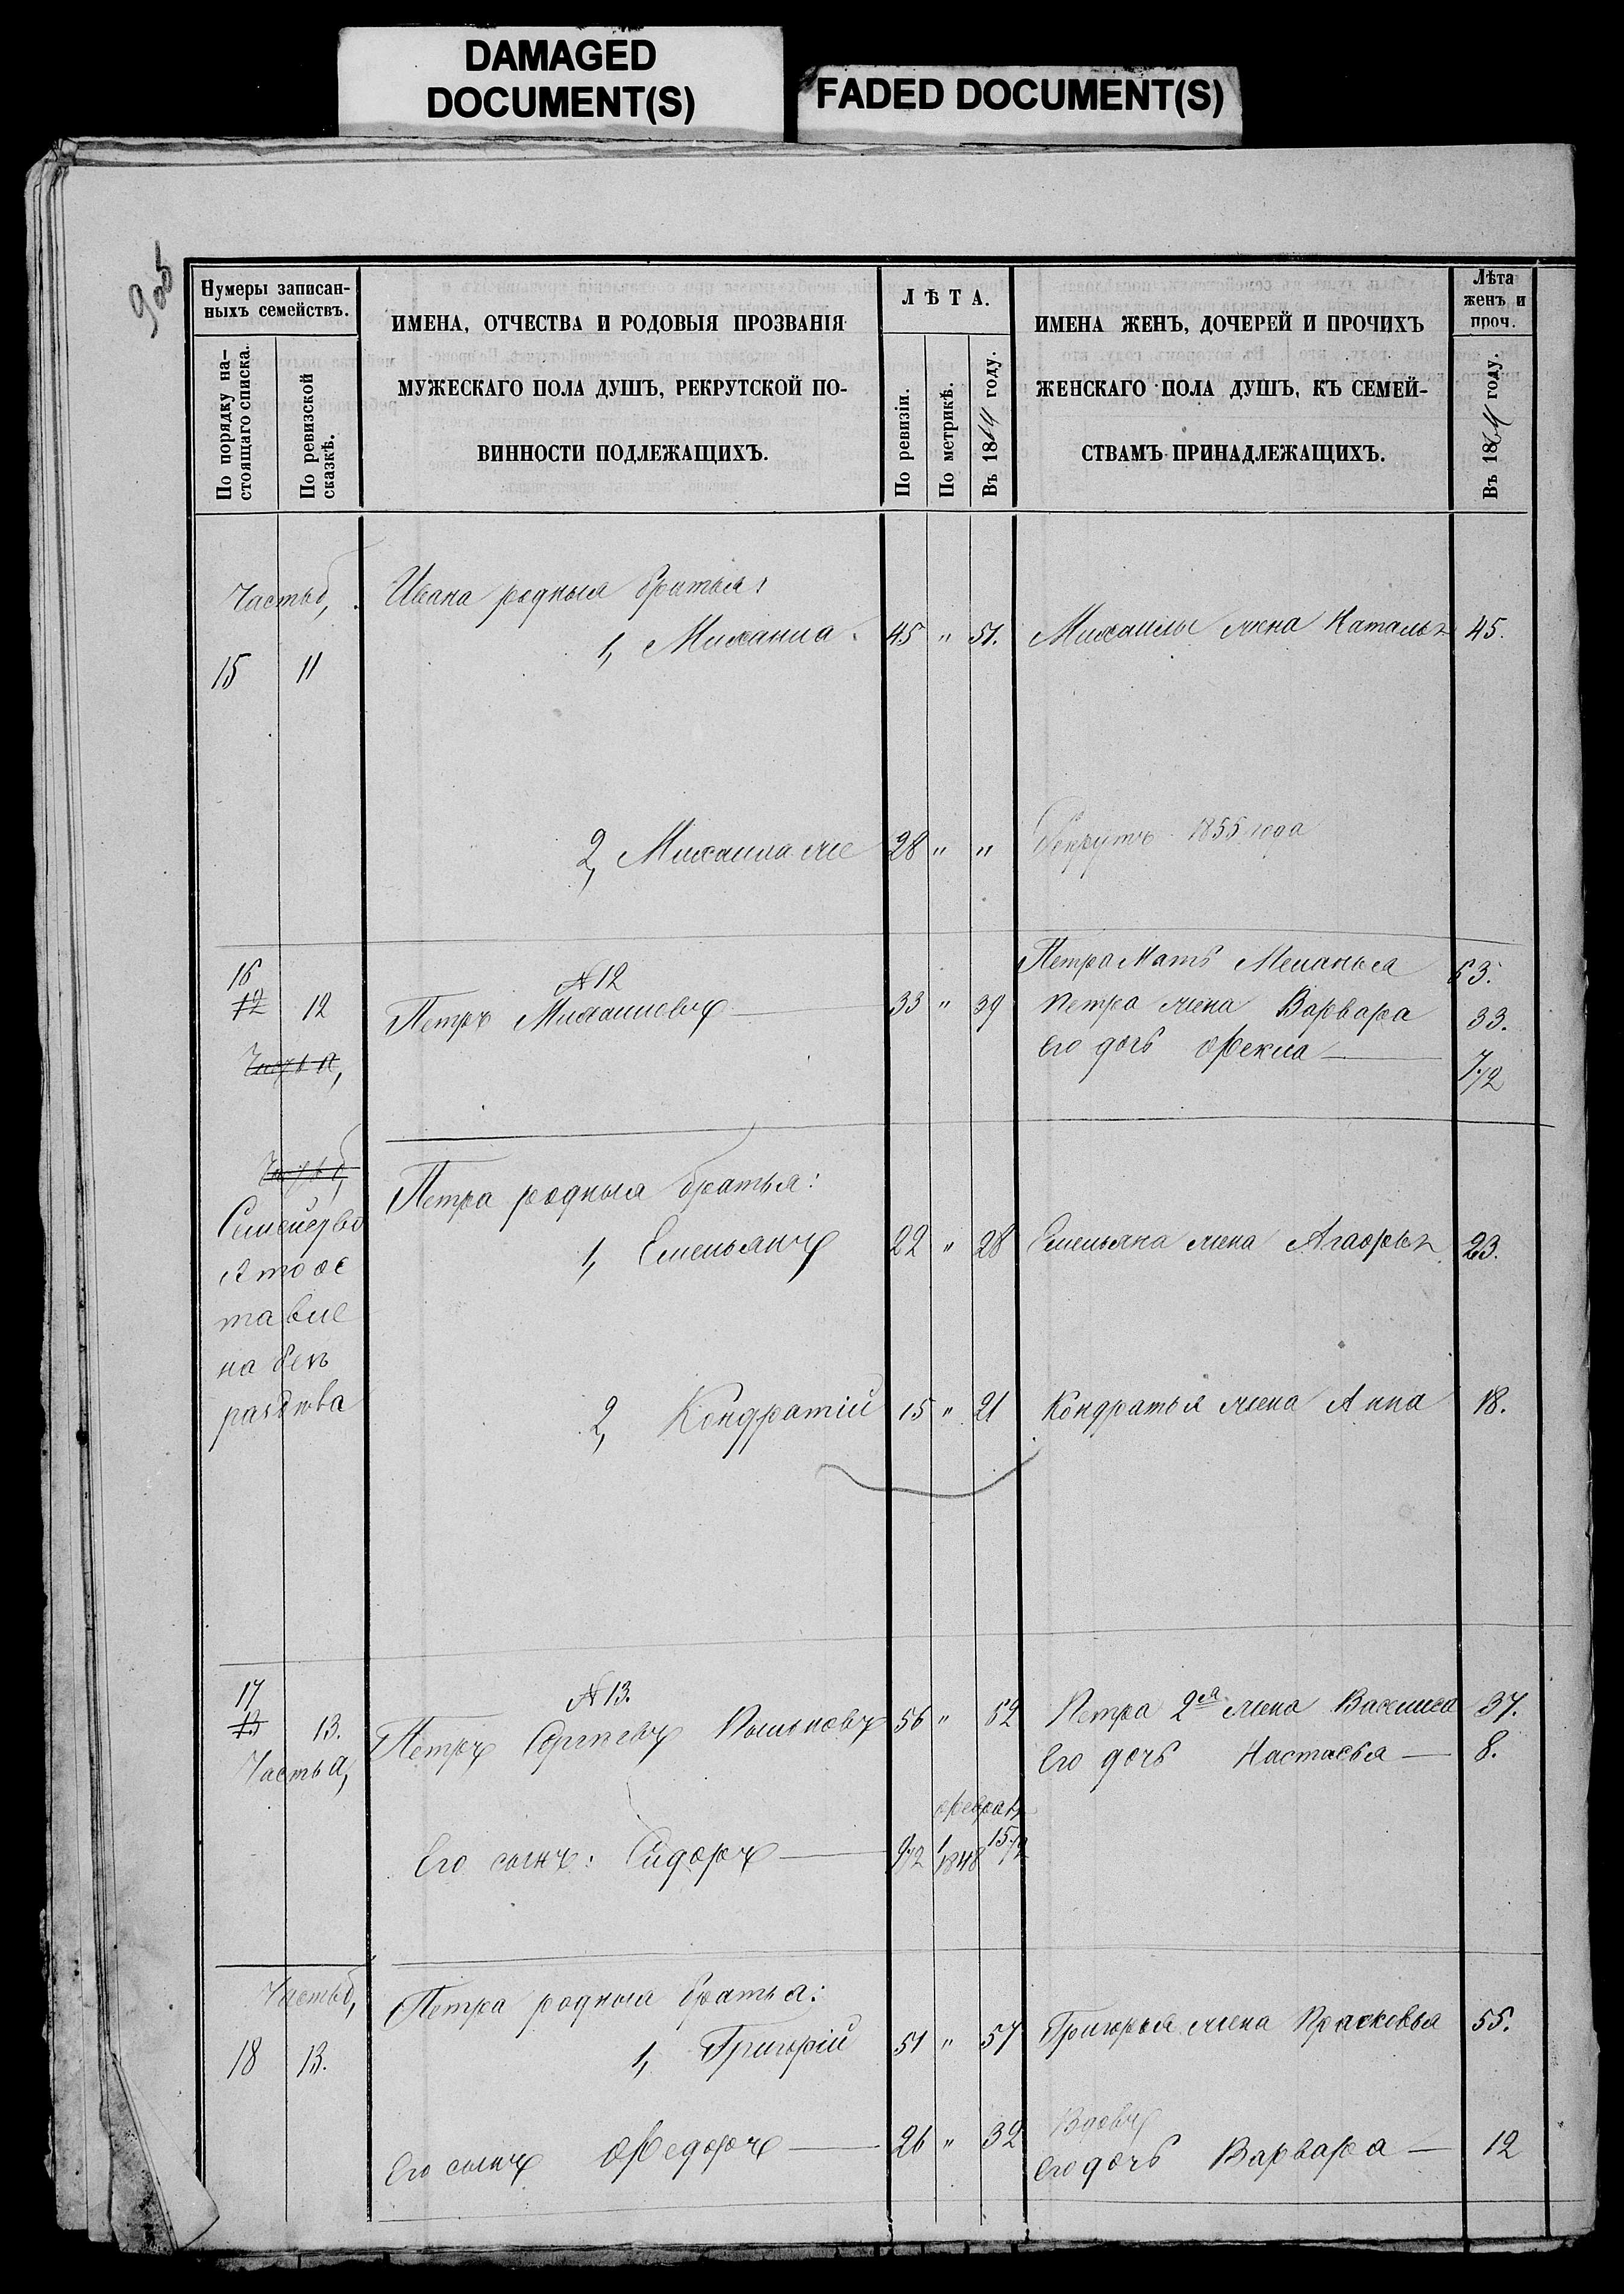 DAMAGED
DOCUMENT(S)
FADED DOCUMENT(S)
905
Нумеры записан-
ныхъ семействъ.
По порядку на-
стоящаго списка.
По ревизской
сказкѣ.
ИМЕНА, ОТЧЕСТВА И РОДОВЫЯ ПРОЗВАНІЯ
МУЖЕСКАГО ПОЛА ДУШЪ, РЕКРУТСКОЙ ПО-
ВИННОСТИ ПОДЛЕЖАЩИХЪ.
ЛѢТА.
По ревизіи.
По метрикѣ.
Въ 1864 году.
ИМЕНА ЖЕНЪ, ДОЧЕРЕЙ И ПРОЧИХЪ
ЖЕНСКАГО ПОЛА ДУШЪ, КЪ СЕМЕЙ-
СТВАМЪ ПРИНАДЛЕЖАЩИХЪ.
Лѣта
женъ и
проч.
Въ 1864 году.
Часть б, Ивана родныя братья:
1, Михаила 45 " 51. Михаилы жена Наталья 45.
15 11
2, Михаила же 28 " " Рекрутъ 1855 года
Петра Мать Меланья 63.
16 №12
12 12 Петръ Михаиловъ 33 " 39 Петра жена Варвара 33.
Его дочь Фекла 7/12
Часть а,
Часть б,
Петра родныя братья:
Семейство
это ос
тавле
на безъ
раздѣла
1, Емельянъ 22 " 28 Емельяна жена Агафья 23.
2, Кондратій 15 " 21 Кондратья жена Анна 18.
17 №13.
13 13. Петръ Сергѣевъ 56 " 62 Петра 2я жена Василиса 37.
Часть а, Его дочь Настасья 8.
Февраля
Его сынъ: Сидоръ 9/12 1 1848 15 /12
Часть б, Петра родныя братья:
18 13. 1, Григорій 51 " 57 Григорья жена Прасковья 55.
Вдовъ
Его сынъ Федоръ 26 " 32 Его дочь Варвара 12